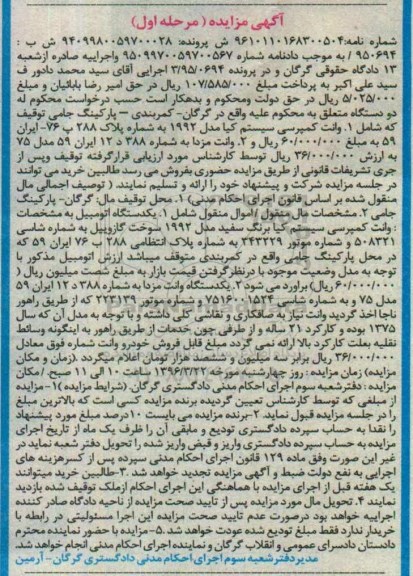 آگهی مزایده (مرحله اول)
شماره نامه:۹۶۱۰۱۱۰۱۶۸۳۰۰۵۰۴ ش پرونده: ۹۴۰۹۹۸۰۰۵۹۷۰۰۰۳۸ ش ب :
۹۵۰۶۹۴ / به موجب دادنامه شماره ۹۵۰۹۹۷۰۰۵۹۷۰۰۵۶۷ واجراییه صادره ازشعبه
۱۳ دادگاه حقوقی گرگان و در پرونده ۳/۹۵۰۶۹۴ اجرایی آقای سید محمد دادور ف
سید علی اکبر به پرداخت مبلغ ۱۰۷/۵۸۵/۰۰۰ ریال در حق امیر رضا بابائیان و مبلغ
۵/۰۲۵/۰۰۰ ریال در حق دولت ومحکوم و بدهکار است حسب درخواست محکوم له
دو دستگاه متعلق به محکوم علیه واقع در گرگان- کمربندی – پارکینگ جامی توقیف
که شامل ۱. وانت کمپرسی سیستم کیا مدل ۱۹۹۲ به شماره پلاک ۲۸۸ ب ۷۶- ایران
۵۹ به مبلغ ۶۰/۰۰۰/۰۰۰ ریال و ۲. وانت مزدا به شماره ۳۸۸ د ۱۲ ایران ۵۹ مدل ۷۵
به ارزش ۳۶/۰۰۰/۰۰۰ ریال توسط کارشناس مورد ارزیابی قرارگرفته توقیف وپس از
جری تشریفات قانونی از طریق مزایده حضوری بفروش می رسد طالبین خرید می توانند
در جلسه مزایده شرکت و پیشنهاد خود را ارائه و تسلیم نمایند. ( توصیف اجمالی مال
منقول شده بر اساس قانون اجرای احکام مدنی) ۱. محل توقیف مال: گرگان- پارکینگ
جامی ۲. مشخصات مال منقول / اموال منقول شامل ۱. یکدستگاه اتومبیل به مشخصات
: وانت کمپرسی سیستم کیا برنگ سفید مدل ۱۹۹۲ سوخت گازوییل به شماره شاسی
۵۰۸۳۲۱ و شماره موتور ۲۴۳۲۲۹ به شماره پلاک انتظامی ۲۸۸ ب ۷۶ ایران ۵۹ که
در محل پارکینگ جامی واقع در کمربندی متوقف میباشد ارزش اتومبیل مذکور با
توجه به مدل وضعیت موجود با درنظرگرفتن قیمت بازار به مبلغ شصت میلیون ریال (
۶۰/۰۰۰/۰۰۰ ریال) براورد می شود ۲. یکدستگاه وانت مزدا به شماره ۳۸۸ د ۱۲ ایران ۵۹
مدل ۷۵ و به شماره شاسی ۷۵۱۶۰۰۱۵۲۴ و شماره موتور ۲۲۴۱۳۹ که از طریق راهور
ناجا اخذ گردید وانت نیاز به صافکاری و نقاشی کلی داشته و با توجه به مدل آن که سال
۱۳۷۵ بوده و کارکرد ۲۱ ساله و از طرفی چون خدمات از طریق راهور به اینگونه وسائط
نقلیه بعلت کارکرد بالا ارائه نمی گردد مبلغ قابل فروش خودرو وانت شماره فوق معادل
۳۶/۰۰۰/۰۰۰ ریال برابر سه میلیون و ششصد هزار تومان اعلام میگردد .(زمان و مکان
مزایده) زمان مزایده : روز چهارشنبه مورخه ۱۳۹۶/۳/۲۲ ساعت ۱۰ الی ۱۱ صبح . /مکان
مزایده : دفترشعبه سوم اجرای احکام مدنی دادگستری گرگان (شرایط مزایده )۱-مزایده
از مبلغی که توسط کارشناس تعیین گردیده برنده مزایده کسی است که بالاترین مبلغ
را در جلسه مزایده قبول نماید. ۲-برنده مزایده می بایست ۱۰درصد مبلغ مورد پیشنهاد
را نقدا به حساب سپرده دادگستری تودیع و مابقی آن را ظرف یک ماه از تاریخ اجرای
مزایده به حساب سپرده دادگستری واریز و قبض واریز شده را تحویل دفتر شعبه نماید در
غیر این صورت وفق ماده ۱۲۹ قانون اجرای احکام مدنی سپرده پس از کسرهزینه های
اجرایی به نفع دولت ضبط و آگهی مزایده تجدید خواهد شد. ۳-طالبین خرید میتوانند
یک هفته قبل از اجرای مزایده با هماهنگی این اجرای احکام ازملک توقیف شده بازدید
نمایند ۴. تحویل مال مورد مزایده پس از تایید صحت مزایده از ناحیه دادگاه صادر کننده
اجراییه خواهد بود درصورت عدم تایید صحت مزایده این اجرا مسئولیتی در رابطه با
خریدار ندارد فقط مبلغ تودیع شده عودت خواهد شد. ۵-مزایده با حضور نماینده محترم
دادستان دادسرای عمومی و انقلاب گرگان و نماینده اجرای احکام مدنی انجام خواهد شد.
مدیردفترشعبه سوم اجرای احکام مدنی دادگستری گرگان - آرمین